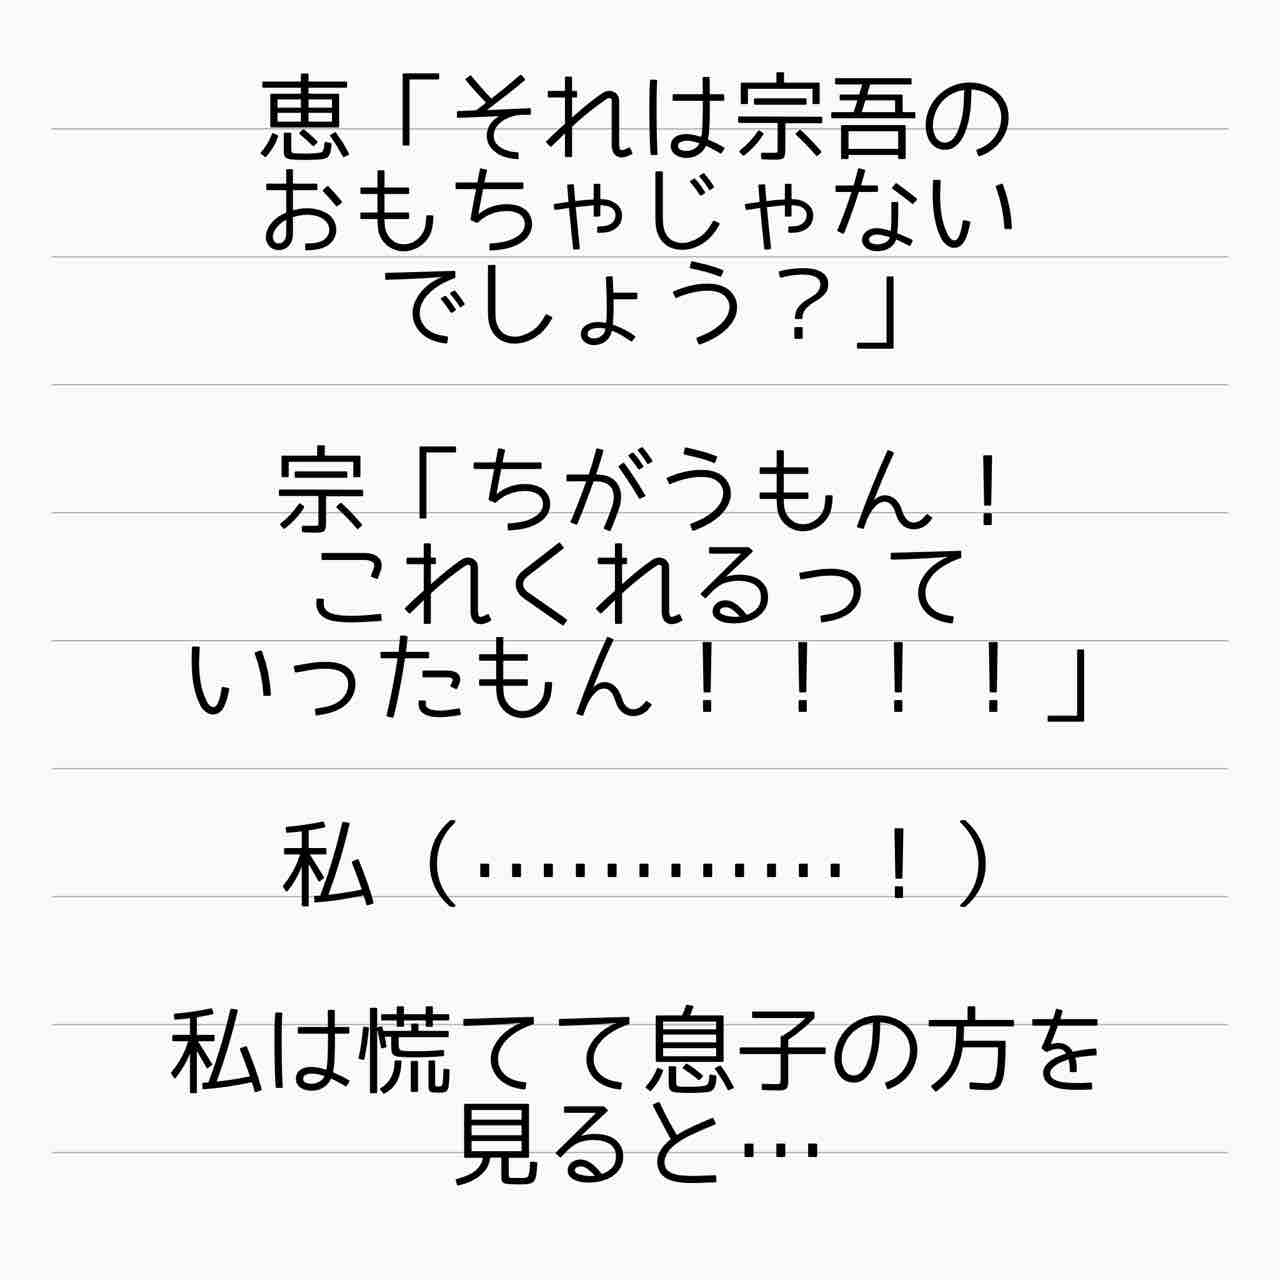 恵「それは宗吾の
おもちゃじゃない
でしょう？」
宗「ちがうもん！
これくれるって
いったもん！！！！」
私（…………！）
私は慌てて息子の方を
見ると…